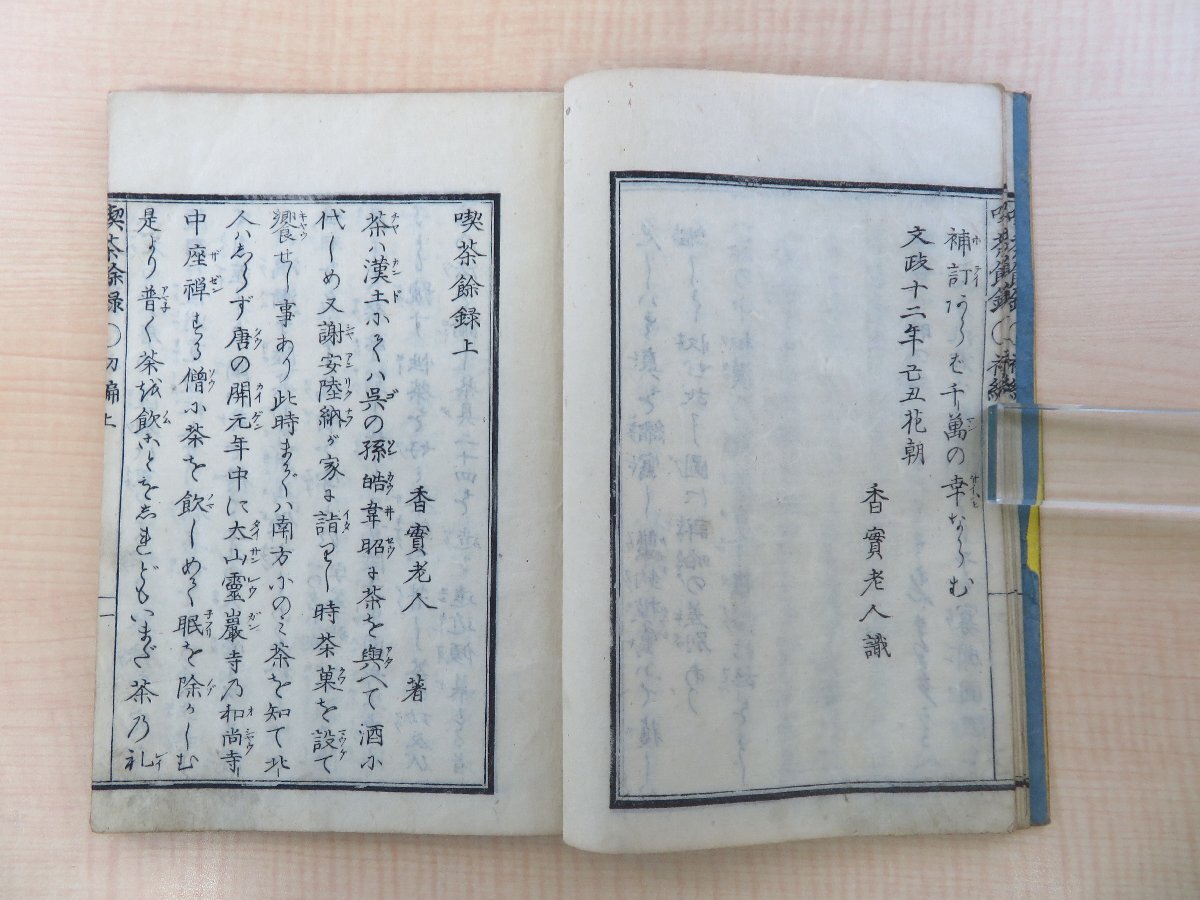 補訂あらば千萬の幸ならむ
文政十二年己丑花朝
香實老人識
喫茶餘録上
香實老人 著
茶ハ漢土にてハ呉の孫皓韋昭に茶を與へて酒に
代しめ又謝安陸納が家に詣りし時茶菓を設て
饗せし事あり此時まではハ南方にのミ茶を知て北
人ハしらず唐の開元年中に太山靈巖寺乃和尚寺
中座禪する僧に茶を飲しめて眠を除かしむ
是より普く茶越飲ことをしれどもいまだ茶乃礼
喫茶餘録 初編上